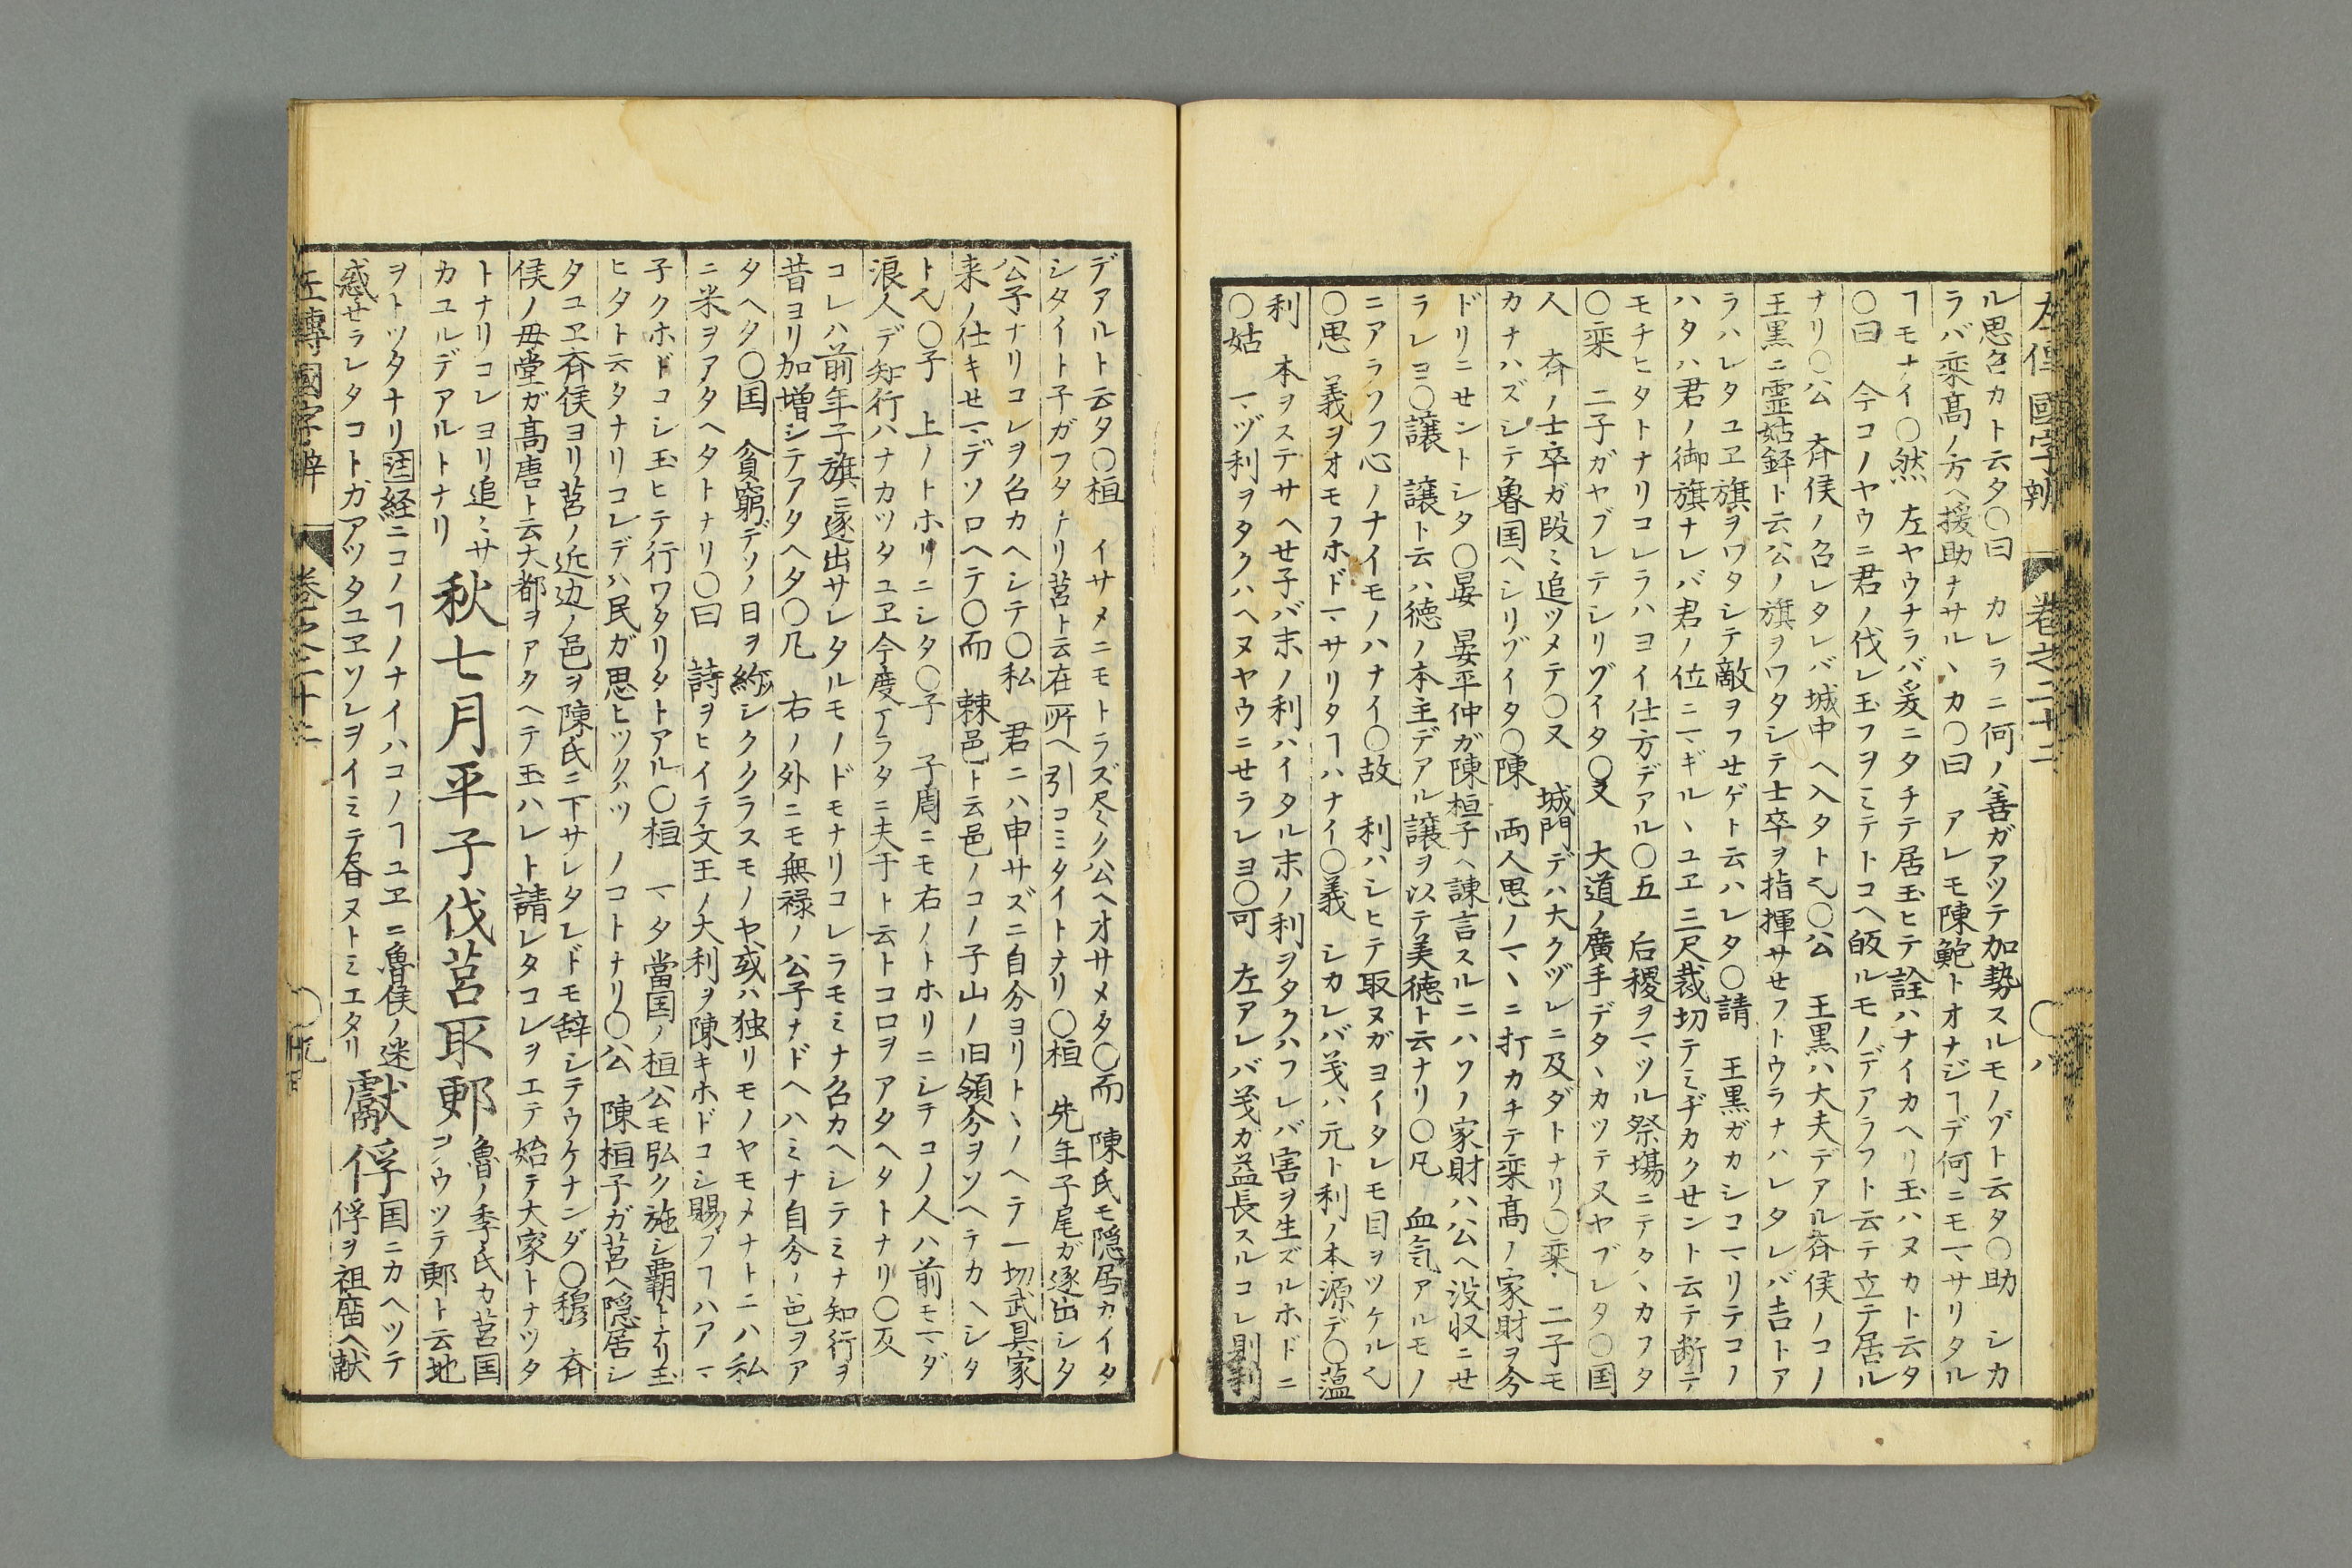 左傳國字辨 巻之二十二 ○八
ル思召カト云タ○曰 カレラニ何ノ善ガアツテ加勢スルモノゾト云タ○助 シカ
ラバ栾髙ノ方ヘ援助ナサルヽカ○曰 アレモ陳鮑トオナジヿデ何ニモマサリタル
ヿモナイ○然 左ヤウナラバ爰ニタチテ居玉ヒテ詮ハナイカヘリ玉ハヌカト云タ
○曰 今コノヤウニ君ノ伐レ玉フヲミテトコヘ皈ルモノデアラフト云テ立テ居ル
ナリ○公 斉侯ノ召レタレバ城中ヘ入タト也○公 王黒ハ大夫デアル斉侯ノコノ
王黒ニ霊姑銔ト云公ノ旗ヲワタシテ士卒ヲ指揮サセフトウラナハレタレバ吉トア
ラハレタユヱ旗ヲワタシテ敵ヲフせゲト云ハレタ○請 王黒ガカシコマリテコノ
ハタハ君ノ御旗ナレバ君ノ位ニマギルヽユヱ三尺裁切テミヂカクせント云テ断テ
モチヒタトナリコレラハヨイ仕方デアル○五 后稷ヲマツル祭場ニテタヽカフタ
○栾 二子ガヤブレテシリゾイタ○又 大道ノ廣手デタヽカツテ又ヤブレタ○国
人 斉ノ士卒ガ段〻追ツメテ○又 城門デハ大クヅレニ及ダトナリ○栾 二子モ
カナハズシテ魯国ヘシリゾイタ○陳 両人思ノマヽニ打カチテ栾髙ノ家財ヲ今
ドリニせントシタ○晏 晏平仲ガ陳桓子ヘ諌言スルニハソノ家財ハ公ヘ没収ニせ
ラレヨ○譲 譲ト云ハ徳ノ本主デアル譲ヲ以テ美徳ト云ナリ○凡 血気アルモノ
ニアラソフ心ノナイモノハナイ○故 利ハシヒテ取ヌガヨイタレモ目ヲツケル也
○思 義ヲオモフホドマサリタヿハナイ○義 シカレバ義ハ元ト利ノ本源デ○薀
利 本ヲステサヘせ子バ末ノ利ハイタル末ノ利ヲタクハフレバ害ヲ生ズルホドニ
○姑 マヅ利ヲタクハヘヌヤウニせラレヨ○可 左アレバ義ガ益長スルコレ則利
デアルト云タ○桓 イサメニモトラズ尽ク公ヘオサメタ○而 陳氏モ隠居カイタ
シタイト子ガフタナリ莒ト云在所ヘ引コミタイトナリ○桓 先年子尾ガ逐出シタ
公子ナリコレヲ召カヘシテ○私 君ニハ申サズニ自分ヨリトヽノヘテ一切武具家
来ノ仕キせマデソロヘテ○而 棘邑ト云邑ノコノ子山ノ旧領分ヲソヘテカヘシタ
ト也○子 上ノトホリニシタ○子 子周ニモ右ノトホリニシテコノ人ハ前モマダ
浪人デ知行ハナカツタユヱ今度アラタニ夫于ト云トコロヲアタヘタトナリ○反
コレハ前年子旗ニ逐出サレタルモノドモナリコレラモミナ召カヘシテミナ知行ヲ
昔ヨリ加増シテアタヘタ○凡 右ノ外ニモ無禄ノ公子ナドヘハミナ自分ノ邑ヲア
タヘタ○国 貧窮デソノ日ヲ約シククラスモノヤ或ハ独リモノヤモメナトニハ私
ニ米ヲアタヘタトナリ○曰 詩ヲヒイテ文王ノ大利ヲ陳キホドコシ賜フヿハアマ
子クホドコシ玉ヒテ行ワタリタトアル○桓 マタ當国ノ桓公モ弘ク施シ覇トナリ玉
ヒタト云タナリコレデハ民ガ思ヒツクハツノコトナリ○公 陳桓子ガ莒ヘ隠居シ
タユヱ斉侯ヨリ莒ノ近辺ノ邑ヲ陳氏ニ下サレタレドモ辞シテウケナンダ○穆 斉
侯ノ母堂ガ髙唐ト云大都ヲアタヘテ玉ハレト請レタコレヲエテ始テ大家トナツタ
トナリコレヨリ追〻サカユルデアルトナリ 秋七月平子伐莒取郠 魯ノ季氏カ莒国コウツテ郠ト云地
ヲトツタナリ 注 経ニコノヿノナイハコノヿユヱニ魯侯ノ迷惑せラレタコトガアツタユヱソレヲイミテ春ヌトミエタリ 獻俘 国ニカヘツテ俘ヲ祖廟ヘ献
左傳國字辨 巻之二十二